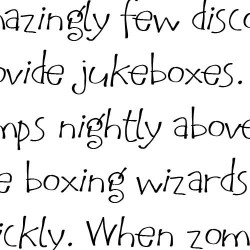 mazingly few disco
ovide jukeboxes.
mps nightly above
e boxing wizards
ickly. When zom